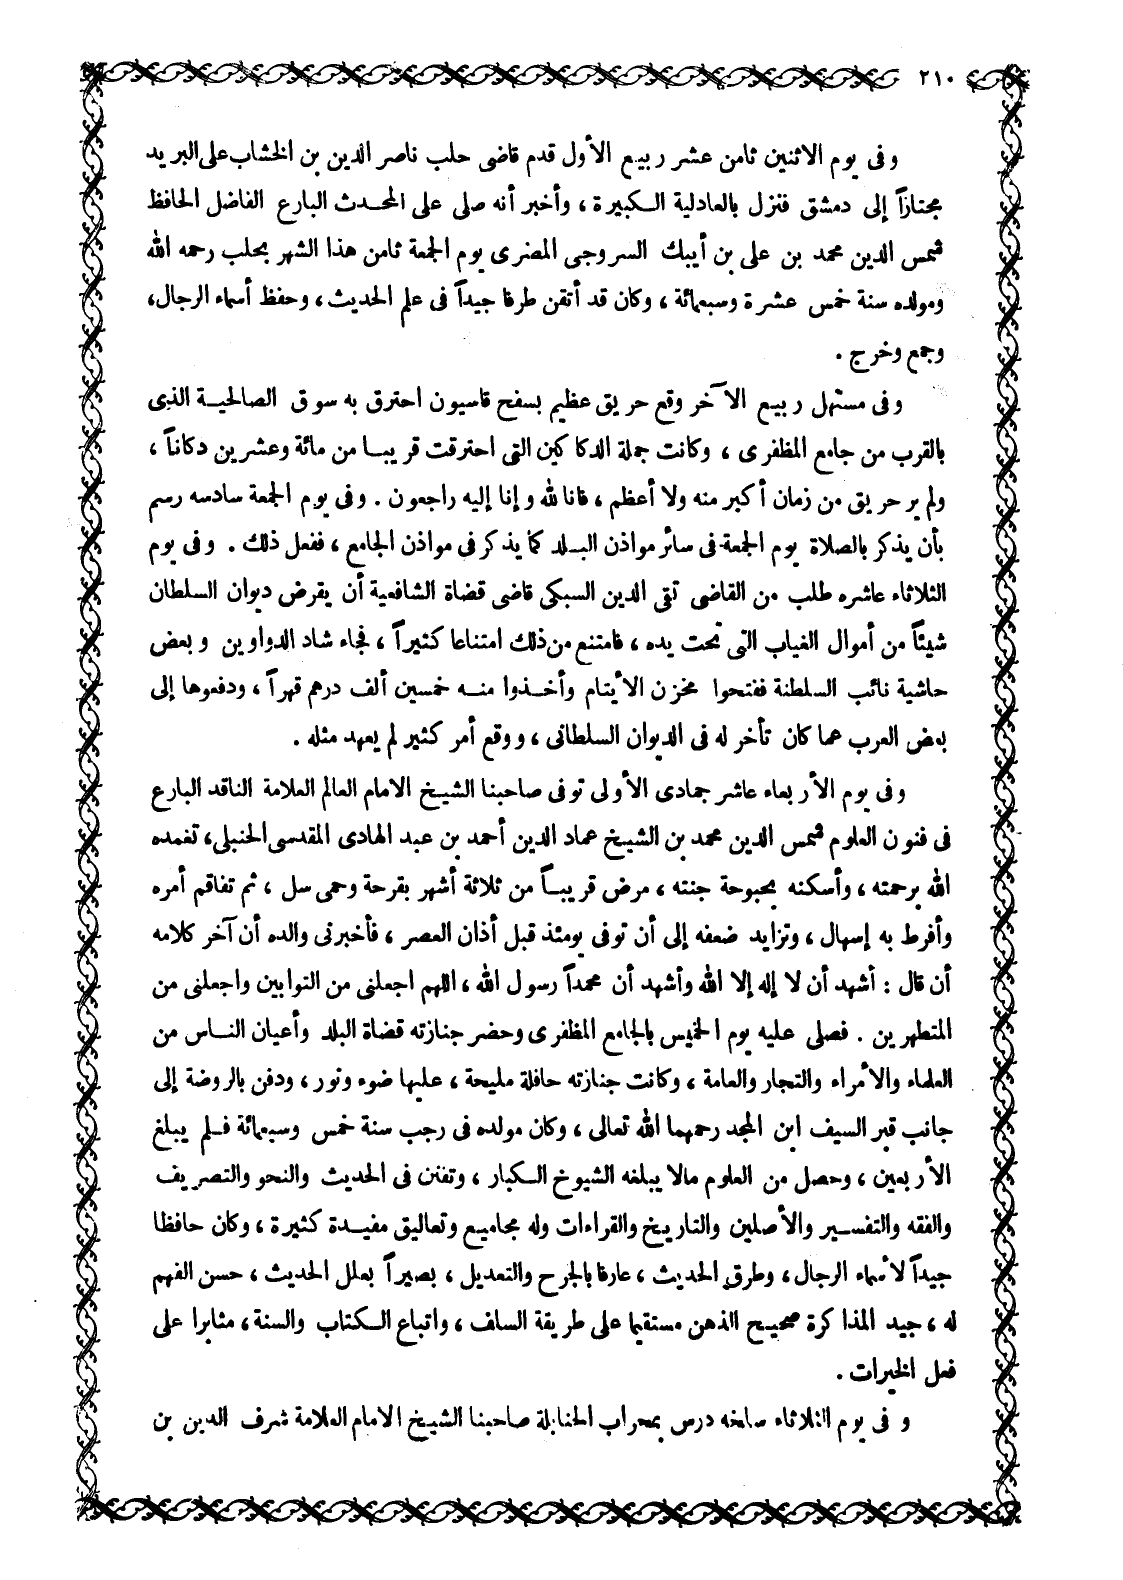 ٢١٠
وفى يوم الاثنين ثامن عشر ربيع الأول قدم قاضى حلب ناصر الدين بن الخشاب على البريد
مجتازاً إلى دمشق فنزل بالعادلية الكبيرة ، وأخبر أنه صلى على المحدث البارع الفاضل الحافظ
شمس الدين محمد بن على بن أيبك السروجى المصرى يوم الجمعة ثامن هذا الشهر بحلب رحمه الله
ومولده سنة خمس عشرة وسبعمائة ، وكان قد أتقن طرفا جيداً فى علم الحديث ، وحفظ أسماء الرجال،
وجمع وخرج .
وفى مستهل ربيع الآخر وقع حريق عظيم بسفح قاسيون احترق به سوق الصالحية الذى
بالقرب من جامع المظفرى ، وكانت جملة الدكاكين التى احترقت قريبا من مائة وعشرين دكاناً ،
ولم ير حريق من زمان أكبر منه ولا أعظم ، فانا لله وإنا إليه راجعون . وفى يوم الجمعة سادسه رسم
بأن يذكر بالصلاة يوم الجمعة فى سائر مواذن البلد كما يذكر فى مواذن الجامع ، ففعل ذلك . وفى يوم
الثلاثاء عاشره طلب من القاضى تقى الدين السبكى قاضى قضاة الشافعية أن يقرض ديوان السلطان
شيئاً من أموال الغياب التى تحت يده ، فامتنع من ذلك امتناعا كثيراً ، فجاء شاد الدواوين وبعض
حاشية نائب السلطنة ففتحوا مخزن الأيتام وأخذوا منه خمسين ألف درهم قهراً ، ودفعوها إلى
بعض العرب عما كان تأخر له فى الديوان السلطانى ، ووقع أمر كثير لم يعهد مثله .
وفى يوم الأربعاء عاشر جمادى الأولى توفى صاحبنا الشيخ الامام العالم العلامة الناقد البارع
فى فنون العلوم شمس الدين محمد بن الشيخ عماد الدين أحمد بن عبد الهادى المقدسى الحنبلى، تغمده
الله برحمته ، وأسكنه بحبوحة جنته ، مرض قريباً من ثلاثة أشهر بقرحة وحمى سل ، ثم تفاقم أمره
وأفرط به إسهال ، وتزايد ضعفه إلى أن توفى يومئذ قبل أذان العصر ، فأخبرنى والده أن آخر كلامه
أن قال : أشهد أن لا إله إلا الله وأشهد أن محمداً رسول الله ، اللهم اجعلنى من التوابين واجعلنى من
المتطهرين . فصلى عليه يوم الخميس بالجامع المظفرى وحضر جنازته قضاة البلد وأعيان الناس من
العلماء والأمراء والتجار والعامة ، وكانت جنازته حافلة مليحة ، عليها ضوء ونور ، ودفن بالروضة إلى
جانب قبر السيف ابن المجد رحمهما الله تعالى ، وكان مولده فى رجب سنة خمس وسبعمائة فلم يبلغ
الأربعين ، وحصل من العلوم مالا يبلغه الشيوخ الكبار ، وتفنن فى الحديث والنحو والتصريف
والفقه والتفسير والأصلين والتاريخ والقراءات وله مجاميع وتعاليق مفيدة كثيرة ، وكان حافظا
جيداً لأسماء الرجال ، وطرق الحديث ، عارفا بالجرح والتعديل ، بصيراً بعلل الحديث ، حسن الفهم
له ، جيد المذاكرة صحيح الذهن مستقيما على طريقة السلف ، واتباع الكتاب والسنة ، مثابرا على
فعل الخيرات .
وفى يوم الثلاثاء سلخه درس بمحراب الحنابلة صاحبنا الشيخ الامام العلامة شرف الدين بن